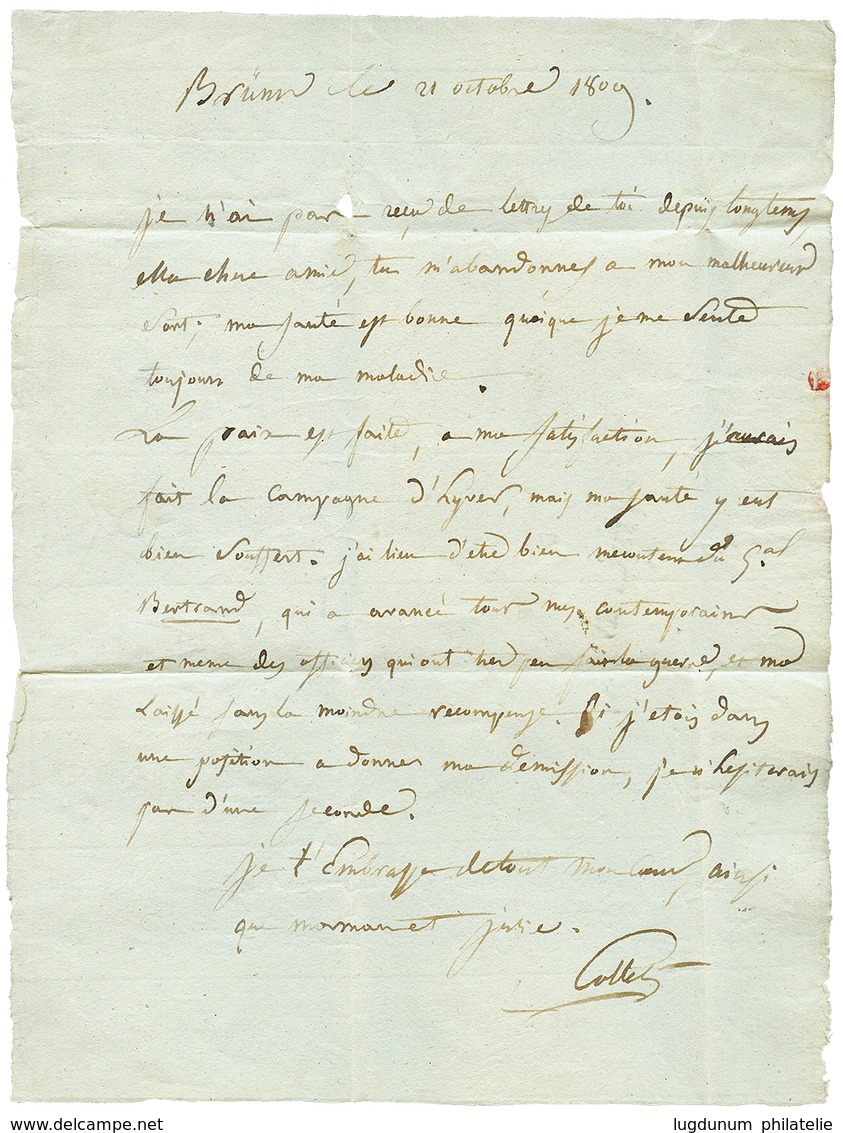 Brünn le 21 octobre 1809.
je n'ai pas reçu de lettres de toi depuis longtems,
Ma chere amie, tu m'abandonnes a mon malheureux
Sort; ma santé est bonne quoique je me Sente
toujours de ma maladie.
La paix est faite, a ma satisfaction, j'aurais
fait la Campagne d'hyver, mais ma santé y eut
bien Souffert. j'ai lieu d'etre bien mecontent du Gal
Bertrand, qui a avancé tous mes contemporains
et meme des officiers qui ont tres peu fait la guerre, et m'a
Laissé sans la moindre recompense. Si j'etois dans
une position a donner ma demission, je n'hesiterais
pas d'une seconde.
je t'Embrasse de tout mon Coeur, ainsi
que maman et julie.
www.delcampe.net
lugdunum philatelie